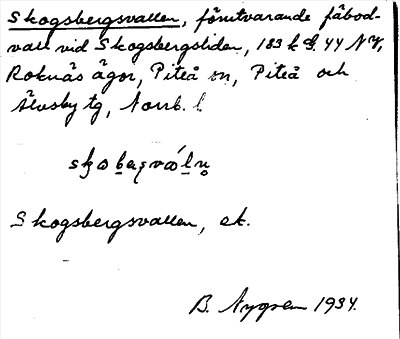 Skogsbergsvallen, förutvarande fäbod-
vall vid Skogsbergsliden, 183 k S. 44 NV,
Roknäs ägor, Piteå sn, Piteå och
Älvsby tg, Norrb. l
Skogsbergsvallen, ek.
B. Nygren 1934.